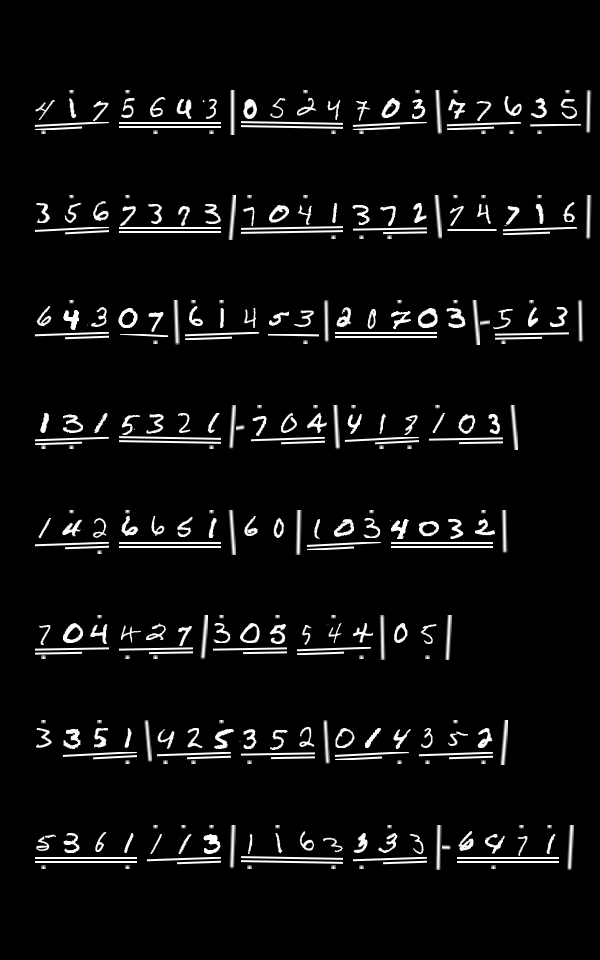 4 1 7 5 6 4 3 | 0 5 2 4 7 0 3 | 7 7 6 3 5 |
3 5 6 7 3 7 3 | 7 0 4 1 3 7 2 | 7 4 7 1 6 |
6 4 3 0 7 | 6 1 4 5 3 | 2 0 7 0 3 | - 5 6 3 |
1 3 1 5 3 2 1 | - 7 0 4 | 4 1 3 1 0 3 |
1 4 2 6 6 5 1 | 6 0 | 1 0 3 4 0 3 2 |
7 0 4 4 2 7 | 3 0 5 5 4 4 | 0 5 |
3 3 5 1 | 4 2 5 3 5 2 | 0 1 4 3 5 2 |
5 3 6 1 1 1 3 | 1 1 6 3 3 3 3 | - 6 4 7 1 |